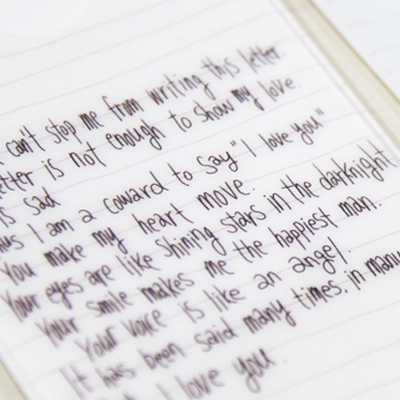 can't stop me from writing this letter
letter is not enough to show my love.
is sad
I am a coward to say "I love you"
You make my heart move.
Your eyes are like shining stars in the darknight
Your smile makes me the happiest man.
Your voice is like an angel.
It has been said many times, in many
I love you.